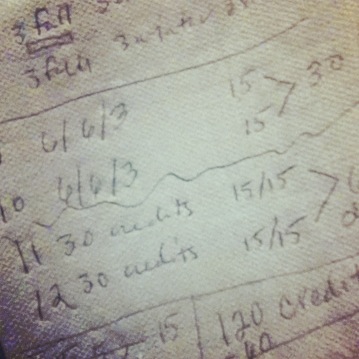 3 Fall 3
3 Fall 3 winter
6/6/3 15 > 30
10 6/6/3 15
11 30 credits 15/15 >
12 30 credits 15/15
15 120 credi